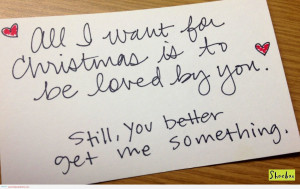 All I want for
Christmas is to
be loved by you.
Still, you better
get me something.
Shoebox